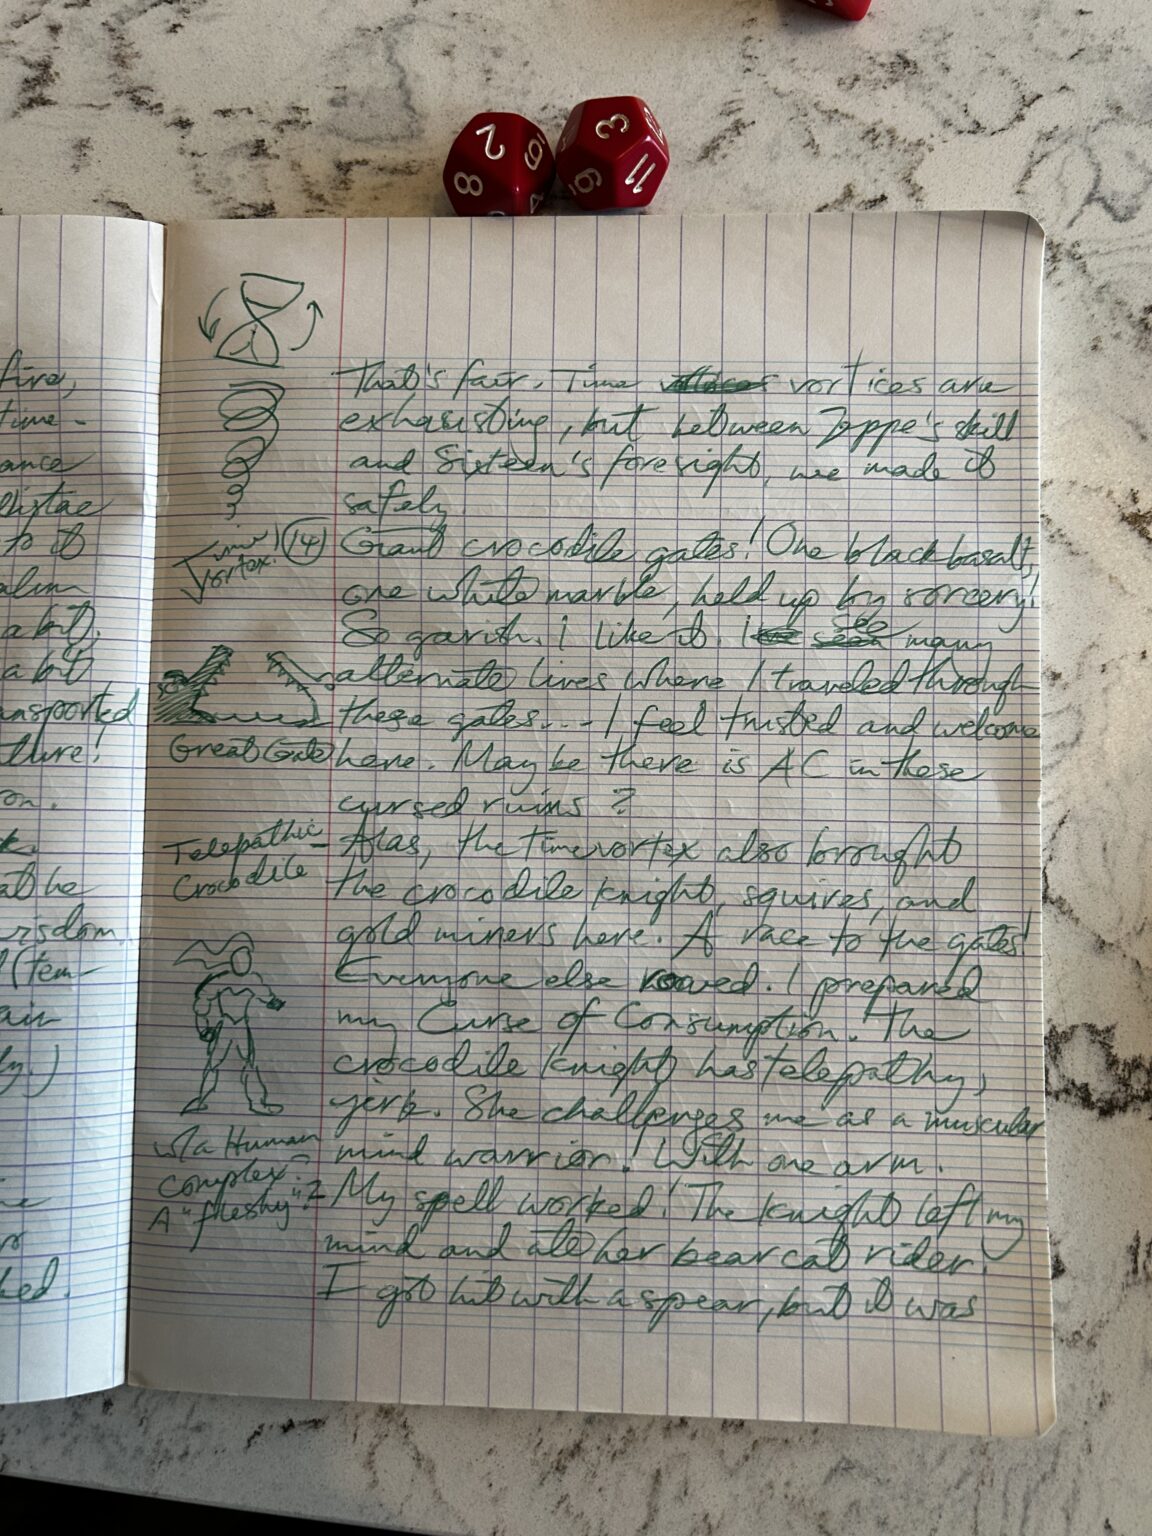 2
8
9
3
11
9
fire,
time-
ance
to it
a bit,
a bit
ansported
ture!
on.
at he
wisdom
(tem-
air
That's fair. Time vortices are
exhausting, but between Zoppe's skill
and Sixteen's foresight, we made it
safely.
Time Vortex!
14
Giant crocodile gates! One black basalt,
one white marble, held up by sorcery!
So garish. I like it. I see many
alternate lives where I traveled through
these gates... - I feel trusted and welcome
here. Maybe there is AC in these
cursed ruins?
Great Gate
Alas, the time vortex also brought
the crocodile knight, squires, and
gold miners here. A race to the gates!
Everyone else roared. I prepared
my Curse of Consumption. The
crocodile knight has telepathy,
jerk. She challenges me as a muscular
mind warrior! With one arm.
My spell worked! The knight left my
mind and ate her bearcat rider!
I got hit with a spear, but it was
Telepathic
Crocodile
w/a Human
complex.
A "fleshy"?